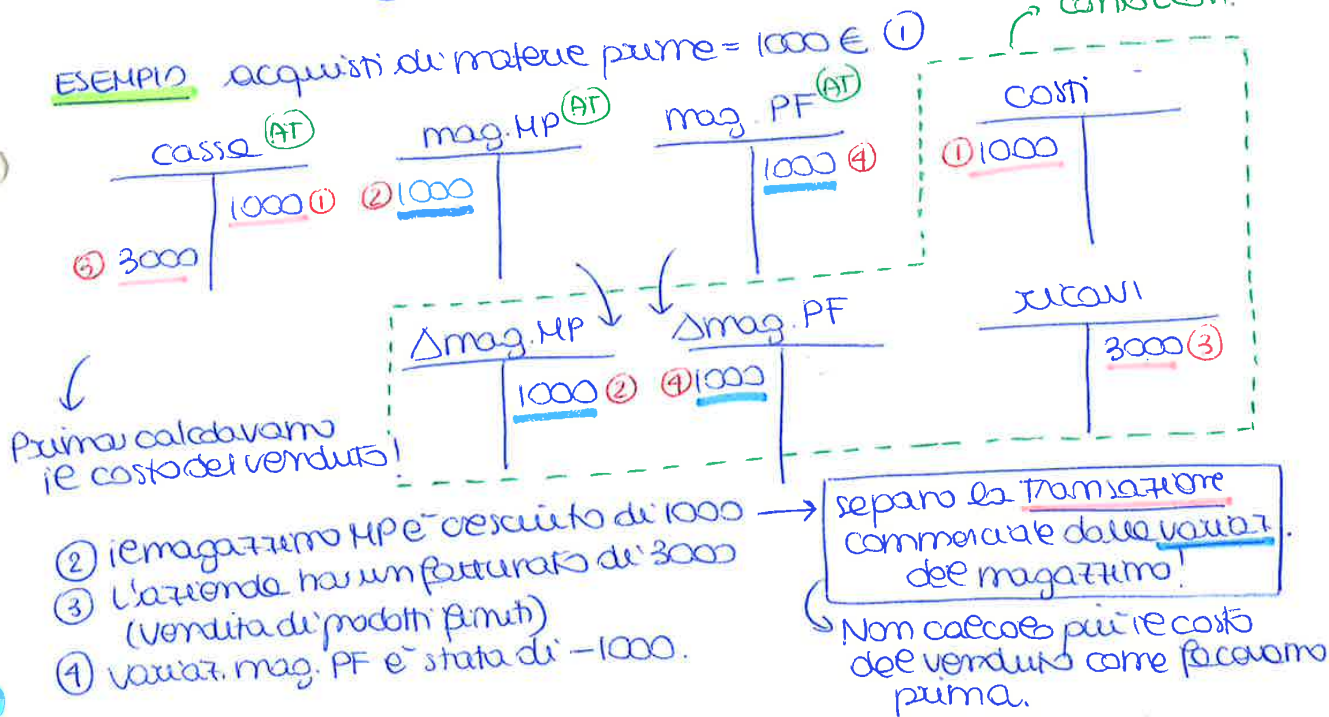 ESEMPIO acquisti di materie prime = 1000 € ①
cassa (AT)
1000 ①
③ 3000
mag. MP (AT)
② 1000
mag. PF (AT)
1000 ④
costi
① 1000
Δmag. MP
1000 ②
Δmag. PF
④ 1000
ricavi
3000 ③
Prima calcolavamo
il costo del venduto!
② il magazzino MP è cresciuto di 1000 →
③ l'azienda ha un fatturato di 3000
(vendita di prodotti finiti)
④ variaz. mag. PF è stata di -1000.
separo la transazione
commerciale dalla variaz.
del magazzino!
Non calcolo più il costo
del venduto come facevamo
prima.